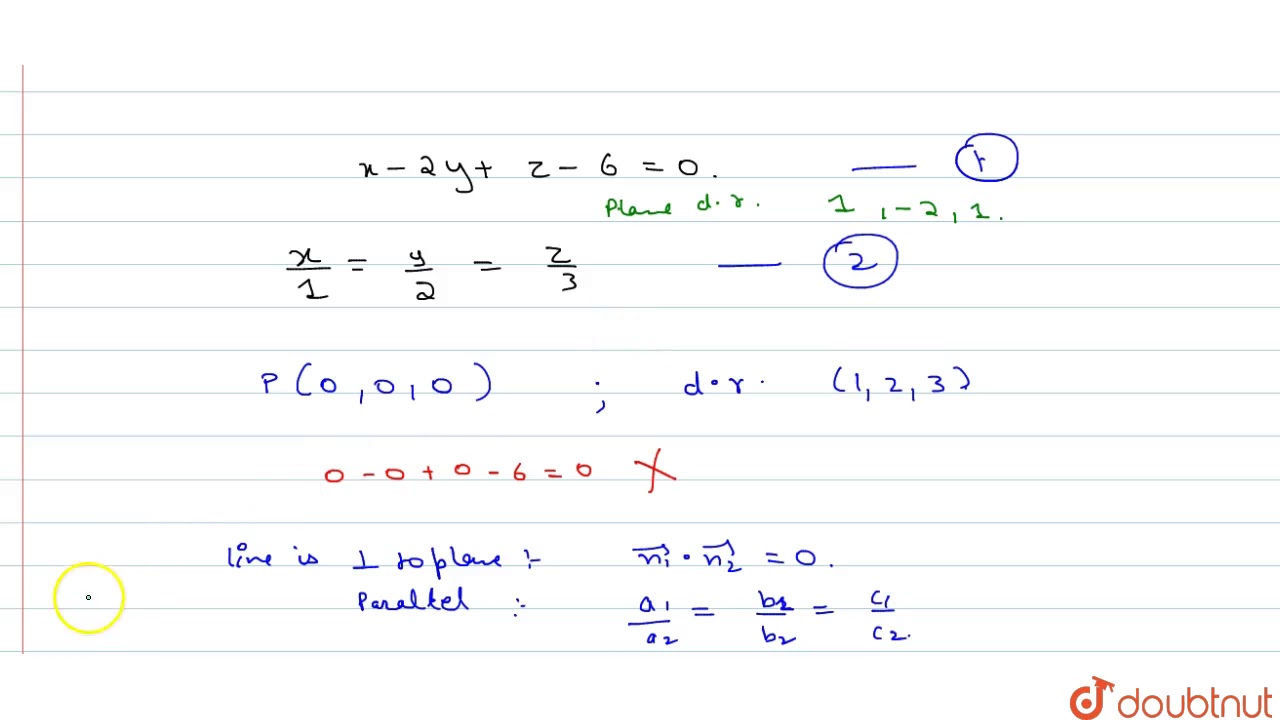 x - 2y + z - 6 = 0. — 1
Plane d.r. 1, -2, 1.
x/1 = y/2 = z/3 — 2
P(0, 0, 0) ; d.r. (1, 2, 3)
0 - 0 + 0 - 6 = 0 ✗
line is ⊥ to plane :- n₁→ · n₂→ = 0.
Parallel :- a₁/a₂ = b₂/b₂ = c₁/c₂.
doubtnut